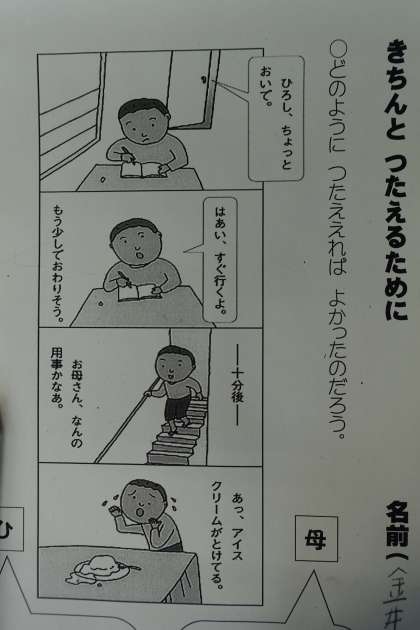 きちんと つたえるために
名前(金井
○どのように つたえればよかったのだろう。
ひろし、ちょっと
おいで。
はあい、すぐ行くよ。
もう少しでおわりそう。
―十分後―
お母さん、なんの
用事かなあ。
あっ、アイス
クリームがとけてる。
母
ひ